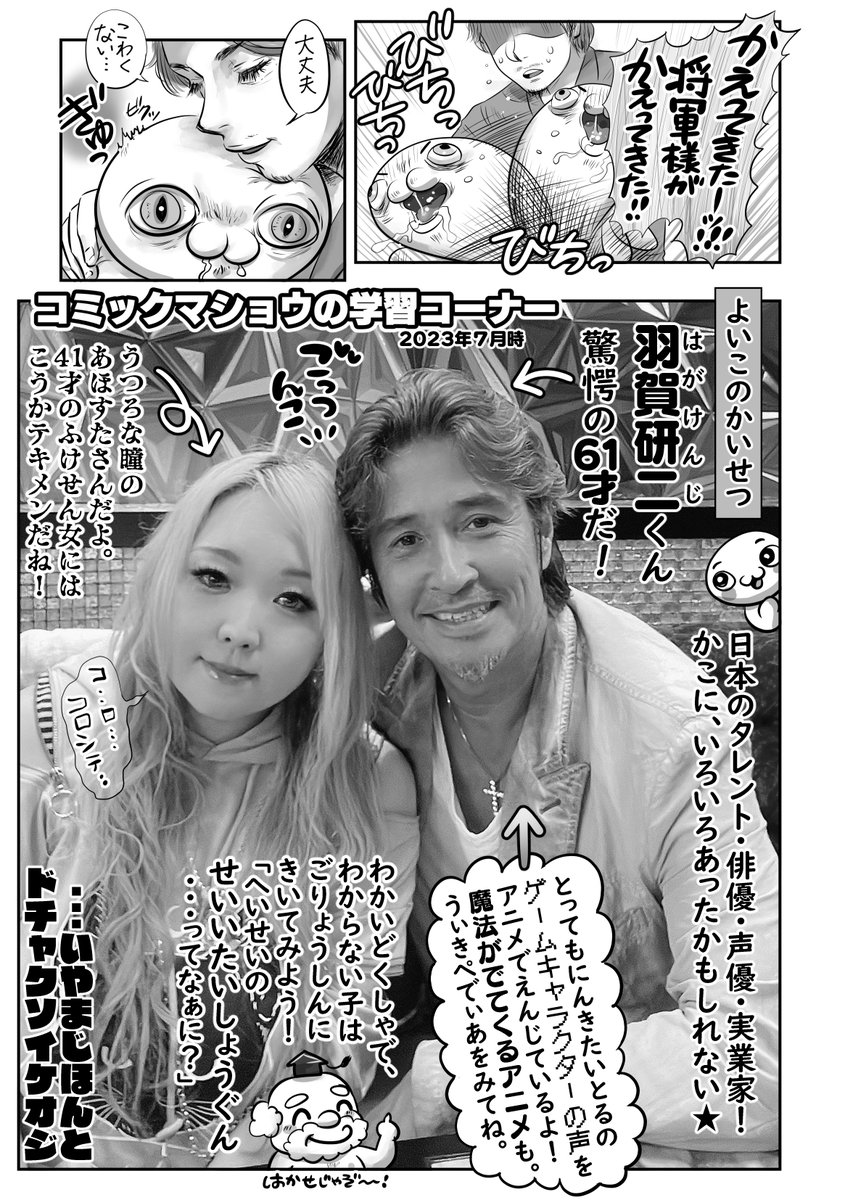 かえってきたーッ!!!
将軍様が
かえってきた!!
びちっ
びちっ
びちっ
びちっ
大丈夫
こわく
ない…
ビクッ
ぎゅっ
コミックマショウの学習コーナー
2023年7月時
よいこのかいせつ
はがけんじ
羽賀研二くん
驚愕の61才だ!
日本のタレント・俳優・声優・実業家!
かこに、いろいろあったかもしれない★
うつろな瞳の
あほすたさんだよ。
41才のふけせん女には
こうかテキメンだね!
コ…ロ…
コロシテ…
とってもにんきたいとるの
ゲームキャラクターの声を
アニメでえんじているよ!
魔法がでてくるアニメも。
うぃきぺでぃあをみてね。
わかいどくしゃで、
わからない子は
ごりょうしんに
きいてみよう!
「へいせいの
せいいたいしょうぐん
…ってなぁに?」
…いやまじほんと
ドチャクソイケオジ
はかせじゃぞ〜〜!